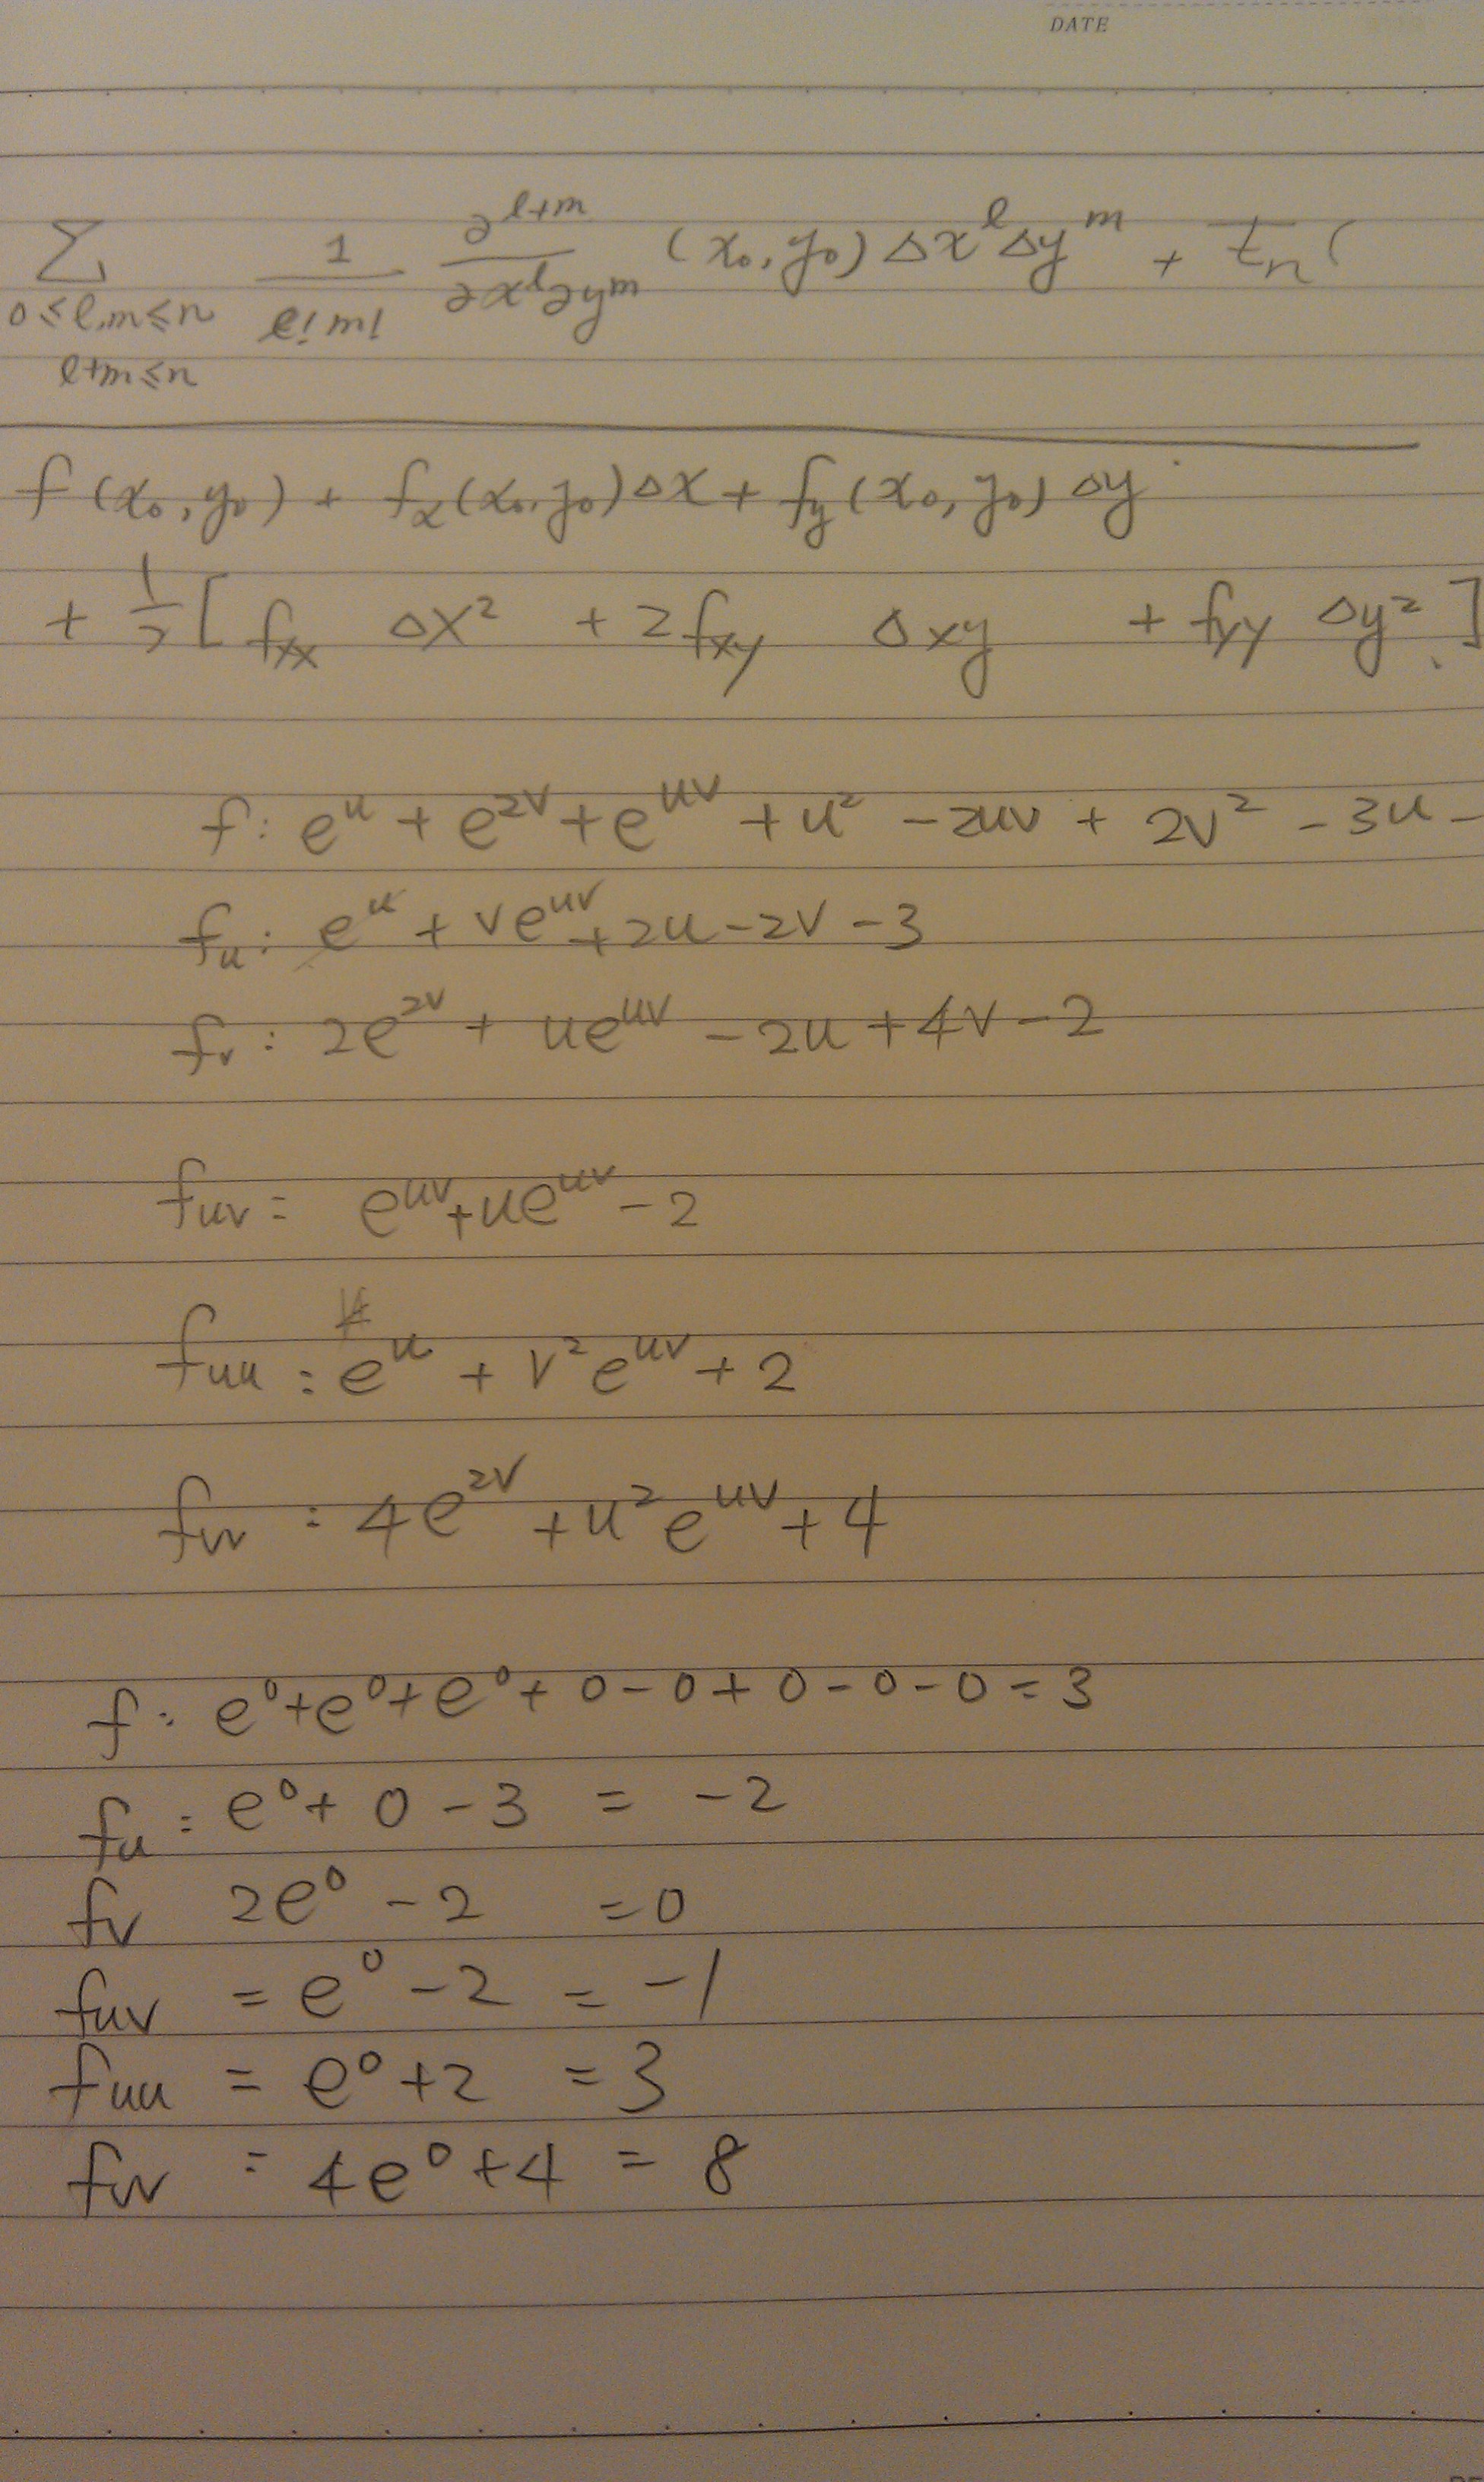 DATE
∑ 1/(l!m!) ∂^(l+m)/(∂x^l∂y^m) (x₀,y₀) Δx^l Δy^m +
0≤l,m≤n
l+m≤n
f(x₀,y₀) + fₓ(x₀,y₀)Δx + f_y(x₀,y₀)Δy
+ ½[f_xx Δx² + 2f_xy Δxy + f_yy Δy²]
f: e^u + e^(2v) + e^(uv) + u² - 2uv + 2v² - 3u -
f_u: e^u + ve^(uv) + 2u - 2v - 3
f_v: 2e^(2v) + ue^(uv) - 2u + 4v - 2
f_uv = e^(uv) + ue^(uv) - 2
f_uu : e^u + v²e^(uv) + 2
f_vv : 4e^(2v) + u²e^(uv) + 4
f: e⁰+e⁰+e⁰+0-0+0-0-0=3
f_u : e⁰+0-3 = -2
f_v 2e⁰-2 =0
f_uv = e⁰-2 = -1
f_uu = e⁰+2 =3
f_vv = 4e⁰+4 = 8